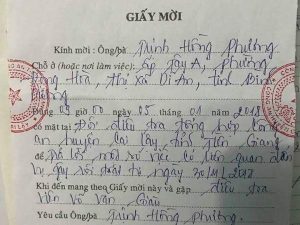 GIẤY MỜI
Kính mời : Ông/bà Trịnh Hồng Phường
Chỗ ở (hoặc nơi làm việc): Ấp Tây A, phường
Đông Hòa, thị xã Dĩ An, tỉnh Bình
Dương
Đúng 09 giờ 00 ngày 05 tháng 01 năm 2018
có mặt tại Đội điều tra tổng hợp Công
an huyện Cai Lậy, tỉnh Tiền Giang
để trả lời một sự việc có liên quan đến
vụ gây rối trật tự ngày 30/11/2017
Khi đến mang theo Giấy mời này và gặp điều tra
viên Võ Văn Giàu
Yêu cầu Ông/bà Trịnh Hồng Phường